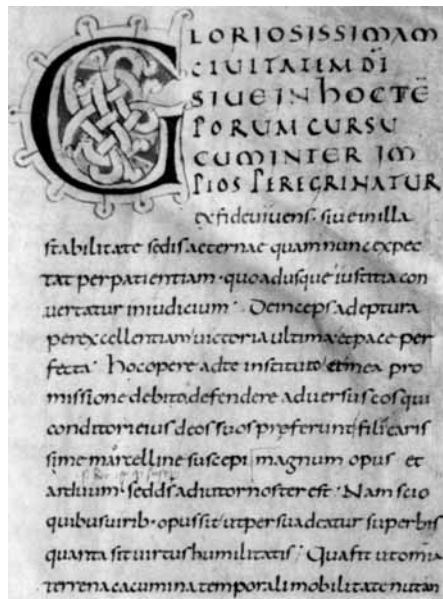 GLORIOSISSIMAM
CIUITATEM DI
SIUE IN hOC TE
PORUM CURSU
CUM INTER IM
PIOS PEREGRINATUR
ex fide uiuens. siue in illa
stabilitate sedis aeternae quam nunc expec
tat per patientiam. quo adusque iustitia con
uertatur in iudicium. Deinceps adeptura
per excellentiam uictoria ultima. et pace per
fecta. hoc opere ad te instituto et mea pro
missione debito. defendere aduersus eos qui
conditori eius deos suos preferunt. fili caris
sime marcelline suscepi magnum opus et
arduum. sed ds adiutor noster est. Nam scio
quibus uirib. opus sit ut persuadeatur superbis
quanta sit uirtus humilitatis. Qua fit ut omia
terrena cacumina temporali mobilitate nutan